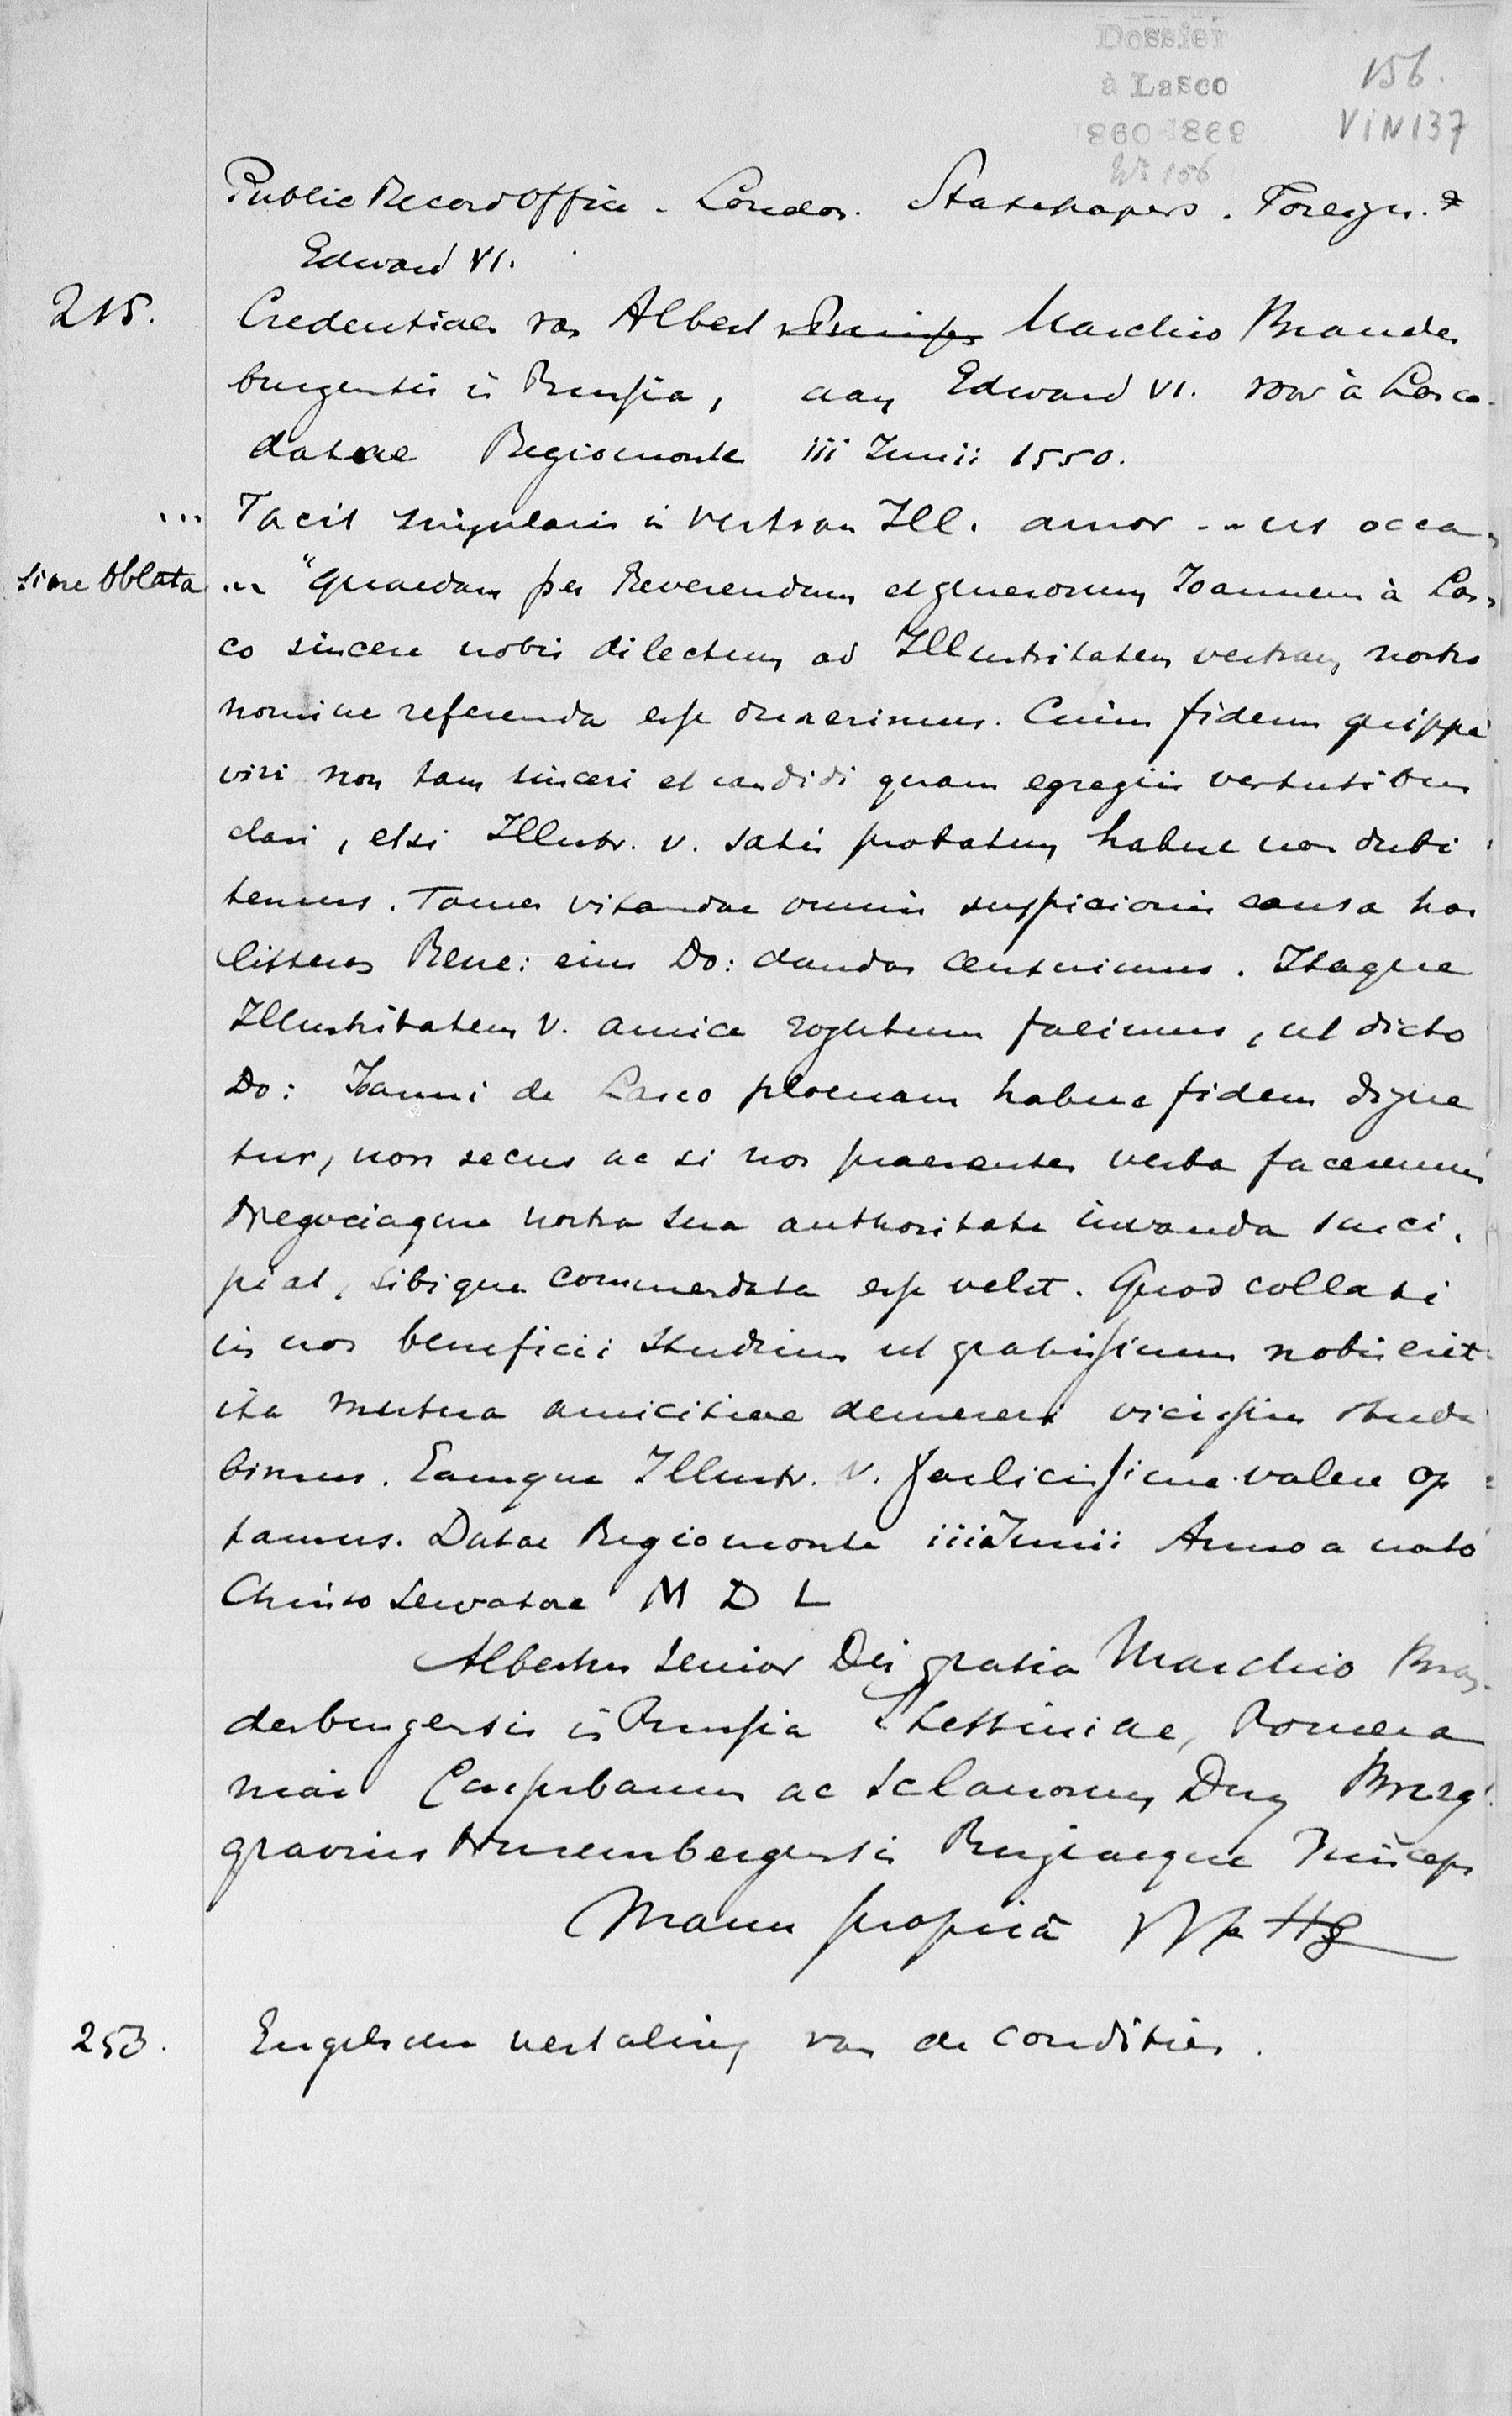 Dossier
à Lasco
1860-1869
No 156
156.
VIN137
Public Record Office. London. Statepapers. Foreign. &
Edward VI.
215. Credentiaen van Albert Marchio Branden
burgensis in Prussia, aan Edward VI. voor à Lasco
datae Regiomonte iii Junii 1550.
... Facit singularis in vestram Ill. amor ... ut occa-
sione oblata ... "Quaedam per Reverendum et generosum Joannem à Las-
co sincere nobis dilectum ad Illustritatem vestram nostro
nomine referenda esse duxerimus. Cuius fidem quippe
viri non tam sinceri et candidi quam egregiis vertutibus
clari, etsi Illustr. v. satis probatum habere non dubi-
temus. Tamen vitandae omnis suspicionis causa has
litteras Reve: eius Do: dandas censuimus. Itaque
Illustritatem V. amice rogatum facimus, ut dicto
Do: Joanni de Lasco plenam habere fidem digne
tur, non secus ac si nos praesentes verba faceremus
Negociaque nostra sua authoritate iuvanda susci-
piat, sibique commendata esse velit. Quod collati
in nos beneficii studium ut gratissimum nobis erit
ita mutua amicitiae demereri vicissim stude
bimus. Eamque Illustr. V. faelicissime valere op-
tamus. Datae Regiomonte iii Junii Anno a nato
Christo servatore M D L
Albertus senior Dei gratia Marchio Bran-
denburgensis in Prussia Stettiniae, Pomera
niae Cassubarum ac Sclavorum Dux Burg-
gravius Nurembergensis Rugiaeque Princeps
Manu propria
253. Engelsche vertaling van de condities.